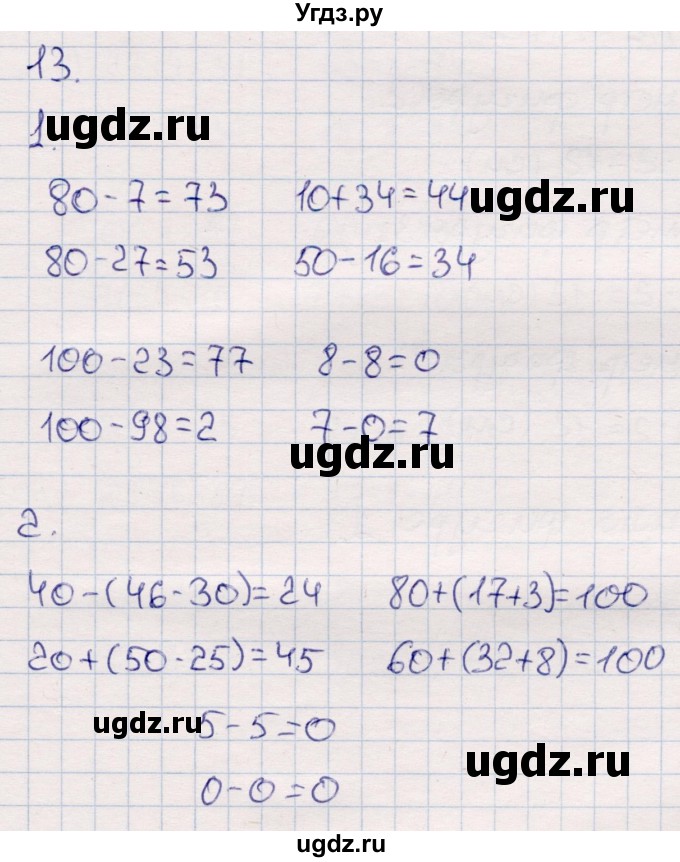 Угдз.ру
13.
ugdz.ru
1.
80-7=73 10+34=44
ugdz.ru
80-27=53 50-16=34
100-23=77 8-8=0
100-98=2 7-0=7
ugdz.ru
2.
40-(46-30)=24 80+(17+3)=100
20+(50-25)=45 60+(32+8)=100
ugdz.ru 5-5=0
ugdz.ru
0-0=0
ugdz.ru